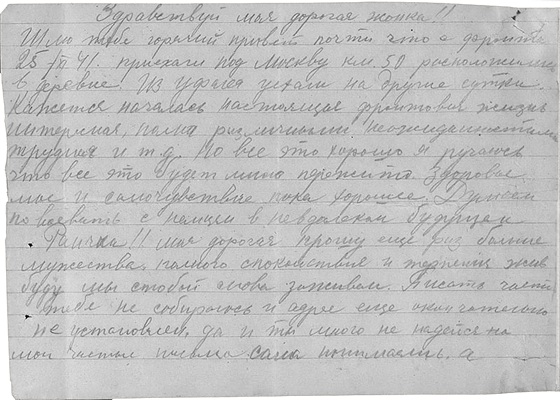 Здравствуй моя дорогая жонка!!
Шлю тебе горячий привет почти что с фронта
25/XI 41. приехали под Москву км 50 расположились
в деревне! Из уехали на другие сутки.
Кажется началась настоящая фронтовая жизнь
интересная, полна различными неожиданностями
трудная и т.д. Но все это хорошо я ручаюсь
что все это будет мною пережито здоровье
мое и самочувствие пока хорошее. Думаем
повоевать с немцем в недалеком будущем
Раичка!! моя дорогая прошу еще раз больше
мужества, полного спокойствия и терпения жив
буду мы с тобой снова заживем. Писать часто
тебе не собираюсь и адрес еще окончательно
не установлен, да и ты много не надейся на
мои частые письма сама понимаешь, а